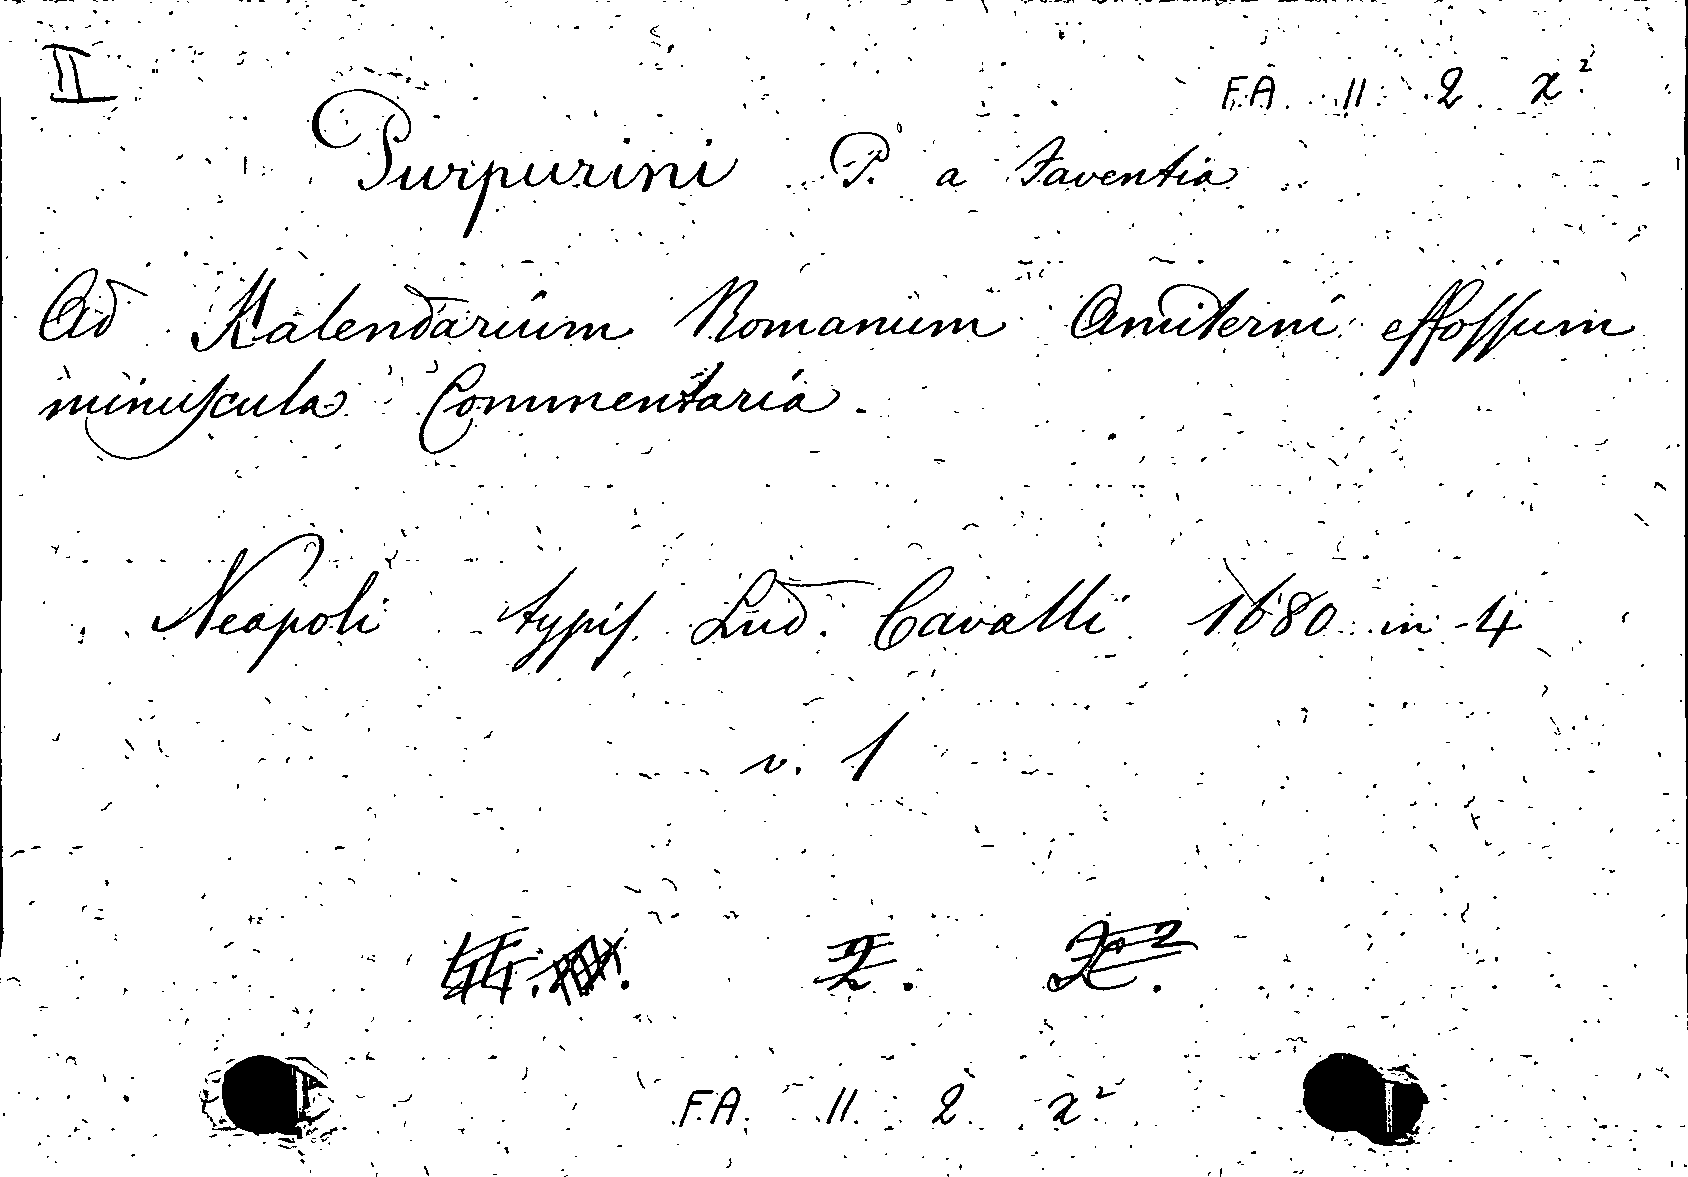 II
F.A. 11. 2. x²
Purpurini P. a Faventia
Ad Kalendarium Romanum Amiterni effoſſum
minuſcula Commentaria.
Neapoli typiſ. Lud. Cavalli 1680 in-4
v. 1
2. X².
F.A. 11. 2 x²